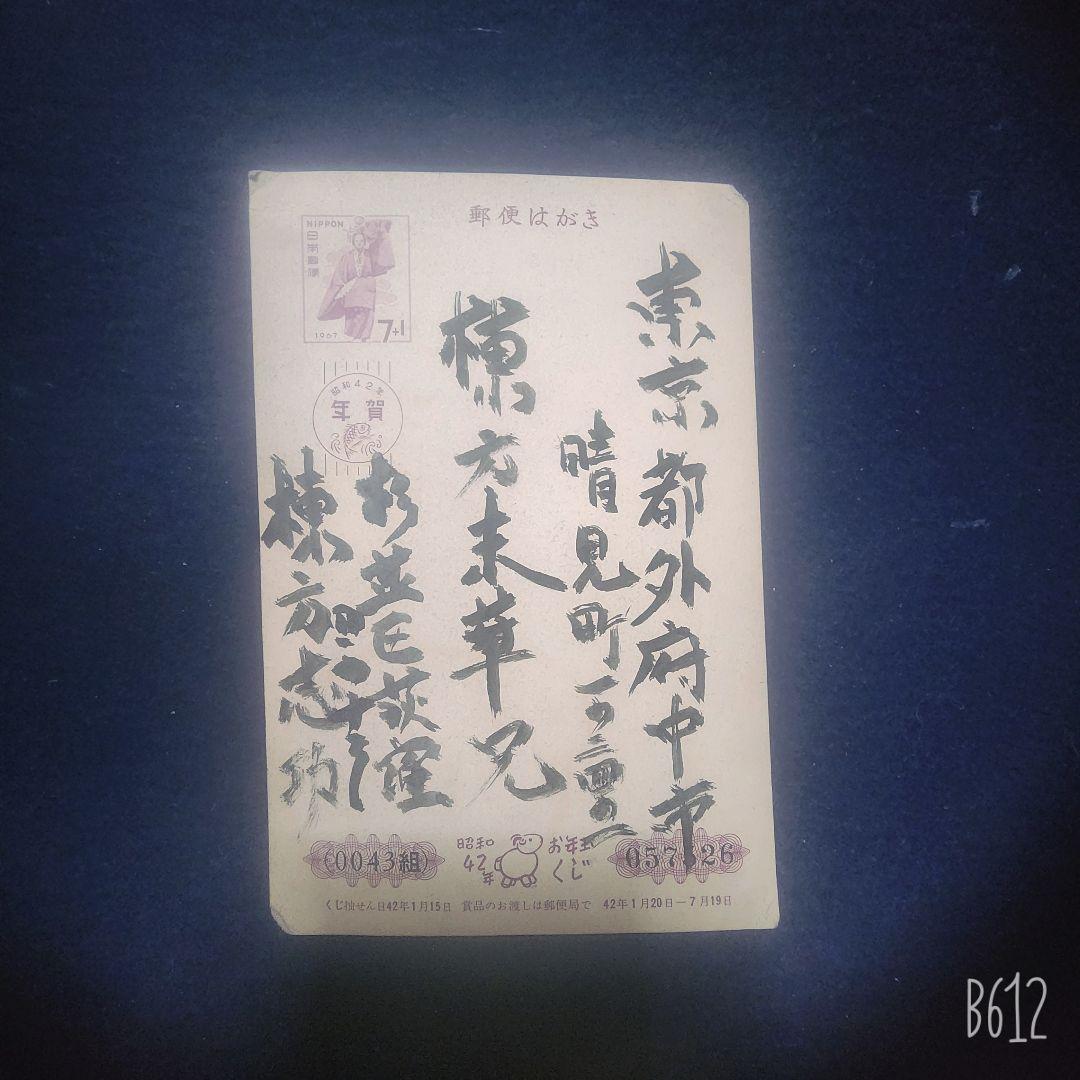 郵便はがき
NIPPON
日本郵便
1967
7+1
昭和42年
年賀
東京都外府中市
晴見町一の二
棟方末華兄
杉並区荻窪
棟方志功
0043組
昭和42年
お年玉くじ
くじ抽せん日42年1月15日 賞品のお渡しは郵便局で 42年1月20日―7月19日
B612